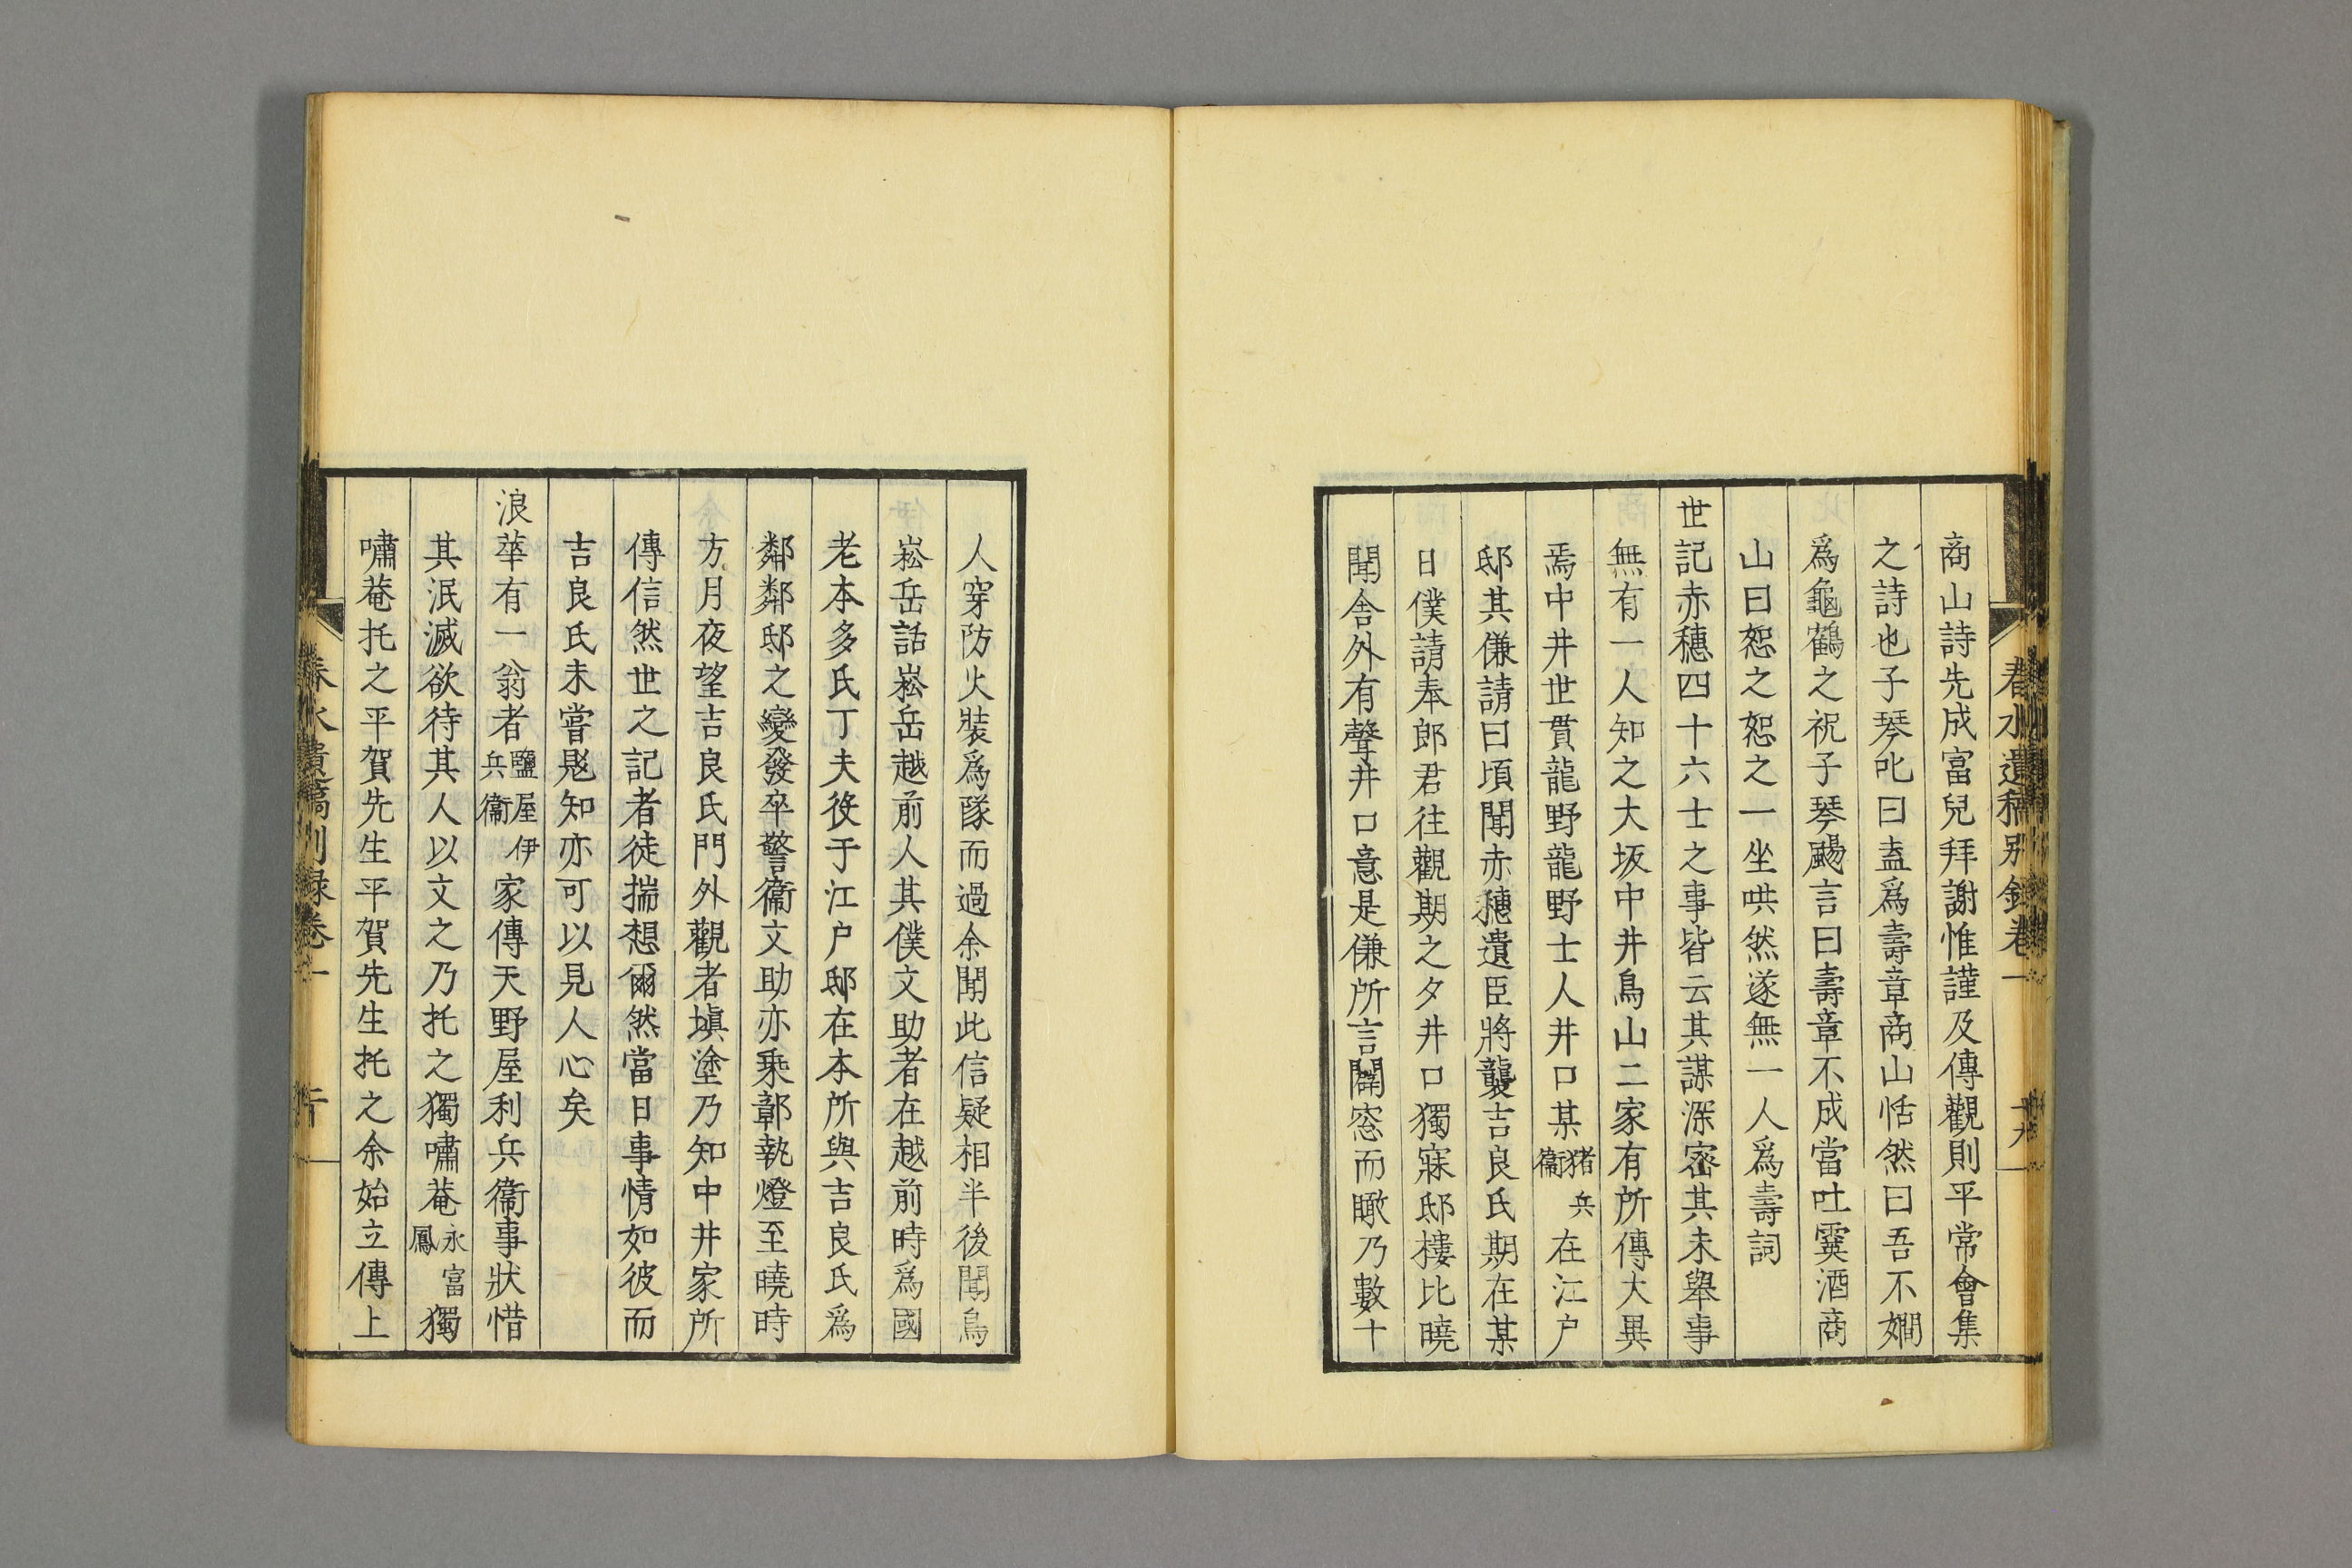 春水遺稿別録卷一
十九
商山詩先成富兒拜謝惟謹及傳觀則平常會集
之詩也子琴叱曰盍爲壽章商山恬然曰吾不嫺
爲龜鶴之祝子琴颺言曰壽章不成當吐霙酒商
山曰恕之恕之一坐哄然遂無一人爲壽詞
世記赤穗四十六士之事皆云其謀深密其未舉事
無有一人知之大坂中井鳥山二家有所傳大異
焉中井世貫龍野龍野士人井口某猪兵衞在江戶
邸其傔請曰頃聞赤穗遺臣將襲吉良氏期在某
日僕請奉郎君往觀期之夕井口獨寐邸樓比曉
聞舍外有聲井口意是傔所言闢窓而瞰乃數十
人穿防火裝爲隊而過余聞此信疑相半後聞鳥
崧岳話崧岳越前人其僕文助者在越前時爲國
老本多氏丁夫役于江戶邸在本所與吉良氏爲
鄰鄰邸之變發卒警衞文助亦乘鄣執燈至曉時
方月夜望吉良氏門外觀者塡塗乃知中井家所
傳信然世之記者徒揣想爾然當日事情如彼而
吉良氏未嘗覐知亦可以見人心矣
浪華有一翁者鹽屋伊兵衞家傳天野屋利兵衞事狀惜
其泯滅欲待其人以文之乃托之獨嘯菴永富鳳獨
嘯菴托之平賀先生平賀先生托之余始立傳上
春水遺稿別録卷一